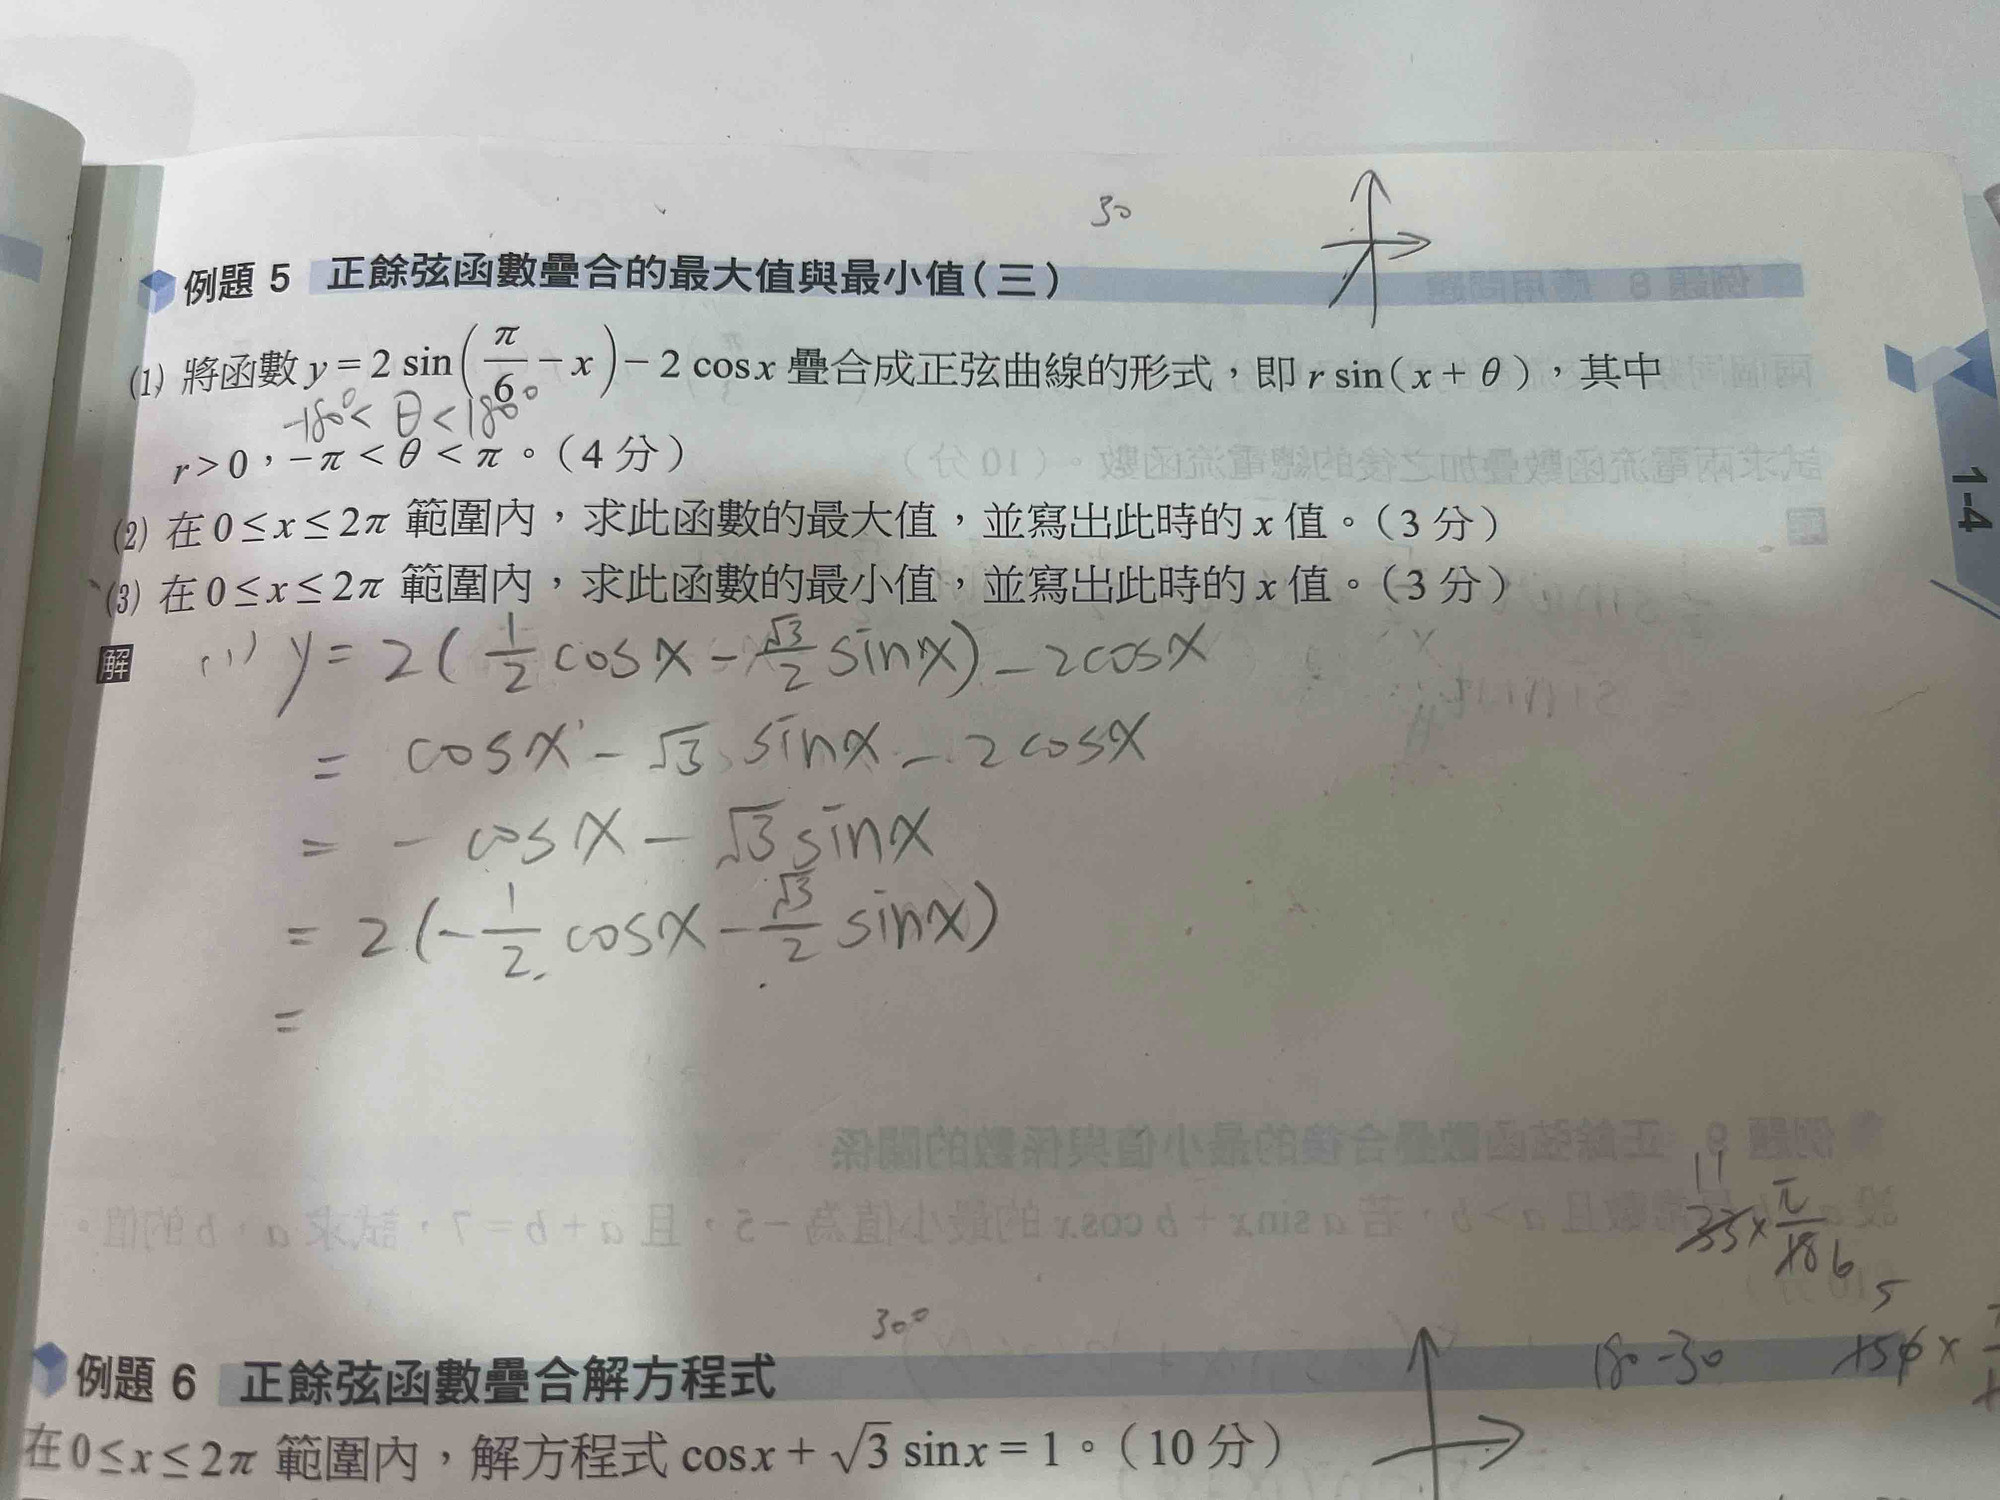 30
例題 5 正餘弦函數疊合的最大值與最小值(三)
(1) 將函數 y = 2 sin(π/6 − x) − 2 cos x 疊合成正弦曲線的形式,即 r sin( x + θ ),其中
-180° < θ < 180°
r > 0,−π < θ < π。(4 分)
(2) 在 0 ≤ x ≤ 2π 範圍內,求此函數的最大值,並寫出此時的 x 值。(3 分)
(3) 在 0 ≤ x ≤ 2π 範圍內,求此函數的最小值,並寫出此時的 x 值。(3 分)
1-4
解 (1) y = 2 ( 1/2 cosx − √3/2 sinx) − 2cosx
= cosx − √3 sinx − 2cosx
= − cosx − √3 sinx
= 2 (− 1/2 cosx − √3/2 sinx)
=
11
π
6
5
30°
180-30
例題 6 正餘弦函數疊合解方程式
在 0 ≤ x ≤ 2π 範圍內,解方程式 cos x + √3 sin x = 1。(10 分)